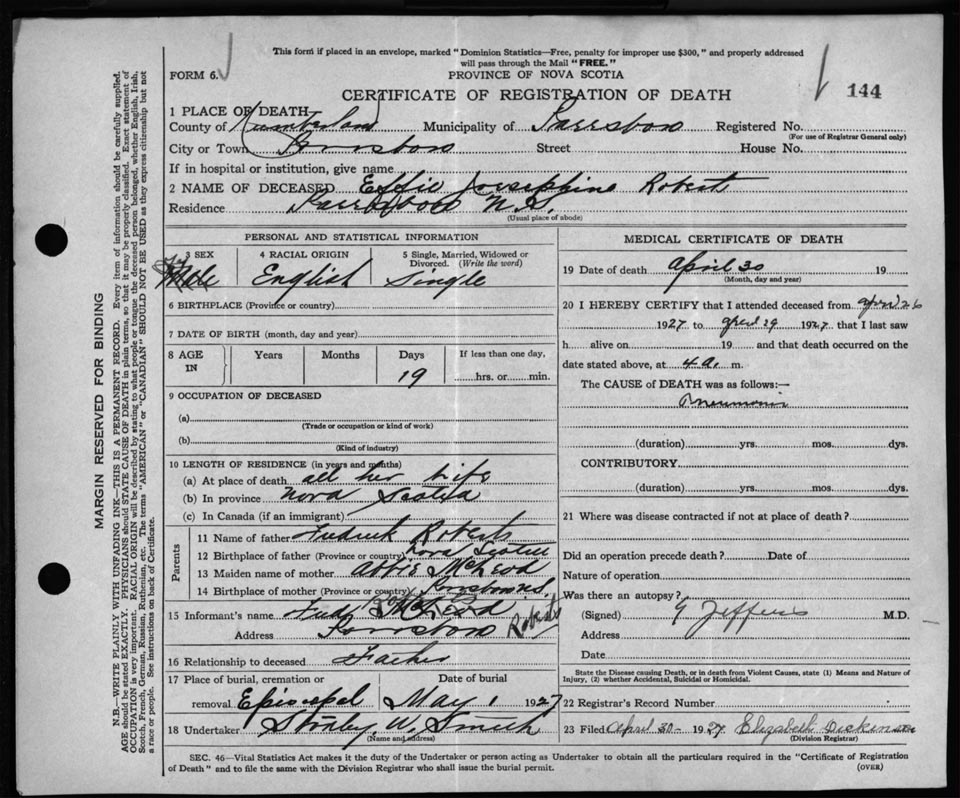 This form if placed in an envelope, marked "Dominion Statistics—Free, penalty for improper use $300," and properly addressed
will pass through the Mail "FREE."
FORM 6.
PROVINCE OF NOVA SCOTIA
CERTIFICATE OF REGISTRATION OF DEATH
144
1 PLACE OF DEATH
County of Cumberland Municipality of Parrsboro Registered No.
(For use of Registrar General only)
City or Town Parrsboro Street House No.
If in hospital or institution, give name
2 NAME OF DECEASED Effie Josephine Robert
Residence Parrsboro N.S.
(Usual place of abode)
PERSONAL AND STATISTICAL INFORMATION
3 SEX 4 RACIAL ORIGIN 5 Single, Married, Widowed or Divorced. (Write the word)
English Single
6 BIRTHPLACE (Province or country)
7 DATE OF BIRTH (month, day and year)
8 AGE IN Years Months Days If less than one day,
19 hrs. or min.
9 OCCUPATION OF DECEASED
(a)
(Trade or occupation or kind of work)
(b)
(Kind of industry)
10 LENGTH OF RESIDENCE (in years and months)
(a) At place of death all her life
(b) In province Nova Scotia
(c) In Canada (if an immigrant)
Parents
11 Name of father Fredrick Roberts
12 Birthplace of father (Province or country) Nova Scotia
13 Maiden name of mother McLeod
14 Birthplace of mother (Province or country)
15 Informant's name Fred McLeod Roberts
Address Parrsboro
16 Relationship to deceased Father
17 Place of burial, cremation or Date of burial
removal Episcopal May 1 1927
18 Undertaker W. Smith
(Name and address)
MEDICAL CERTIFICATE OF DEATH
19 Date of death April 30 19
(Month, day and year)
20 I HEREBY CERTIFY that I attended deceased from April 26
1927 to April 29 1927 that I last saw
h alive on 19 and that death occurred on the
date stated above, at 4 a. m.
The CAUSE of DEATH was as follows:—
Pneumonia
(duration) yrs. mos. dys.
CONTRIBUTORY.
(duration) yrs. mos. dys.
21 Where was disease contracted if not at place of death?
Did an operation precede death? Date of
Nature of operation
Was there an autopsy?
(Signed) M.D.
Address
Date
State the Disease causing Death, or in death from Violent Causes, state (1) Means and Nature of
Injury, (2) whether Accidental, Suicidal or Homicidal.
22 Registrar's Record Number
23 Filed April 30 1927 Elizabeth Dickinson
(Division Registrar)
SEC. 46—Vital Statistics Act makes it the duty of the Undertaker or person acting as Undertaker to obtain all the particulars required in the "Certificate of Registration
of Death" and to file the same with the Division Registrar who shall issue the burial permit.
(OVER)
MARGIN RESERVED FOR BINDING
N.B.—WRITE PLAINLY WITH UNFADING INK—THIS IS A PERMANENT RECORD. Every item of information should be carefully supplied.
AGE should be stated EXACTLY. PHYSICIANS should STATE CAUSE OF DEATH in plain terms, so that it may be properly classified. Exact statement of
OCCUPATION is very important. RACIAL ORIGIN will be described by stating to what people or tongue the deceased person belonged, whether English, Irish,
Scotch, French, German, Russian, Ruthenian, etc. The terms "AMERICAN" or "CANADIAN" SHOULD NOT BE USED as they express citizenship but not
a race or people. See instructions on back of Certificate.